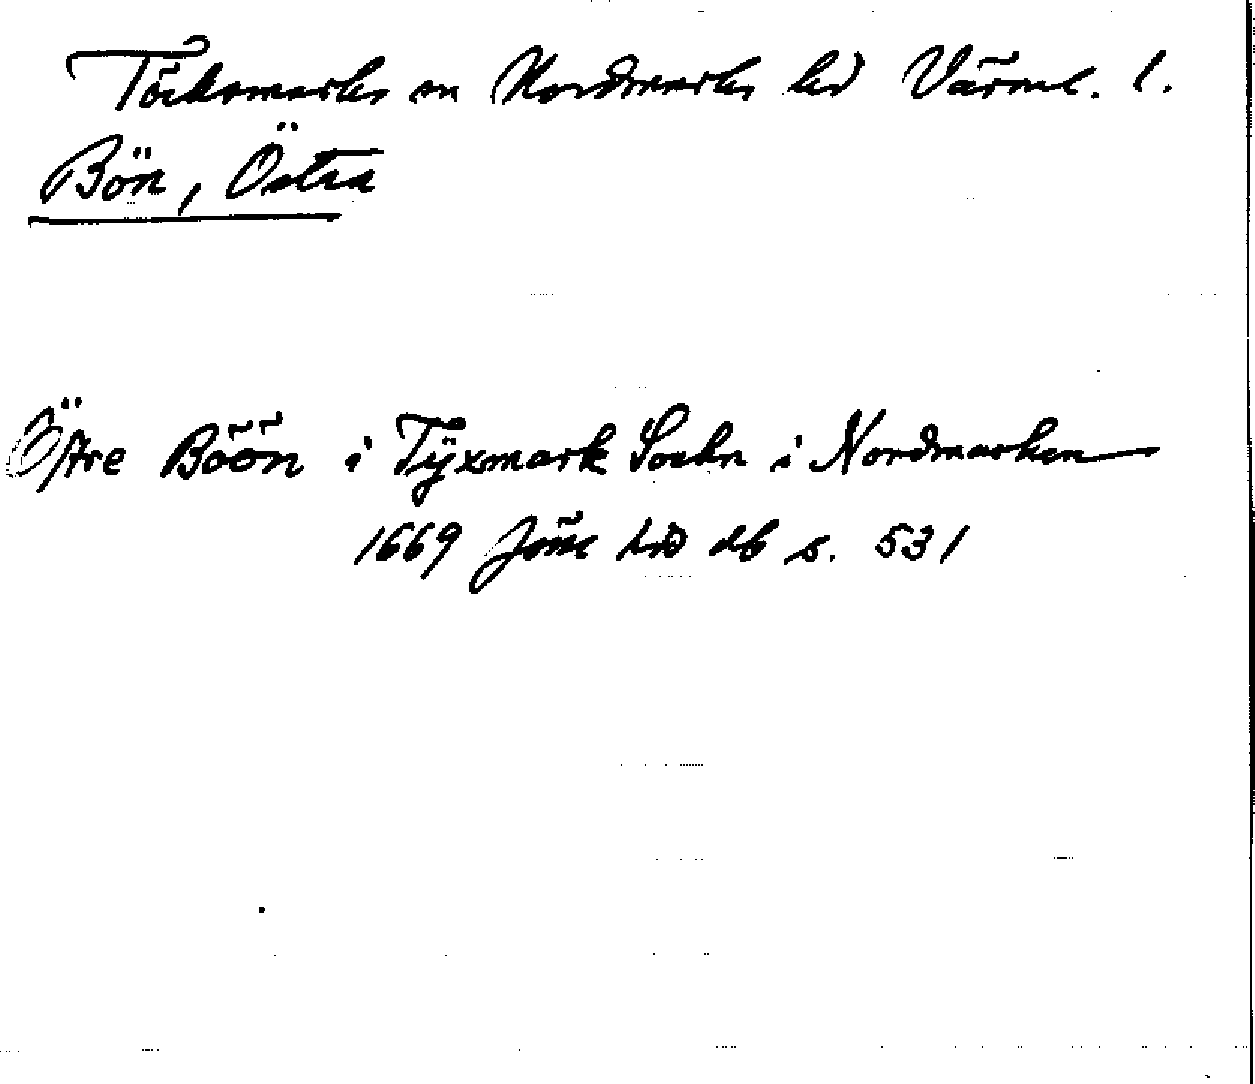 Töcksmarks sn Nordmarks hd Värml. l.
Bön, Östra
Östre Böön i Tÿxmark Sockn i Nordmarken
1669 Jöss hd db s. 531